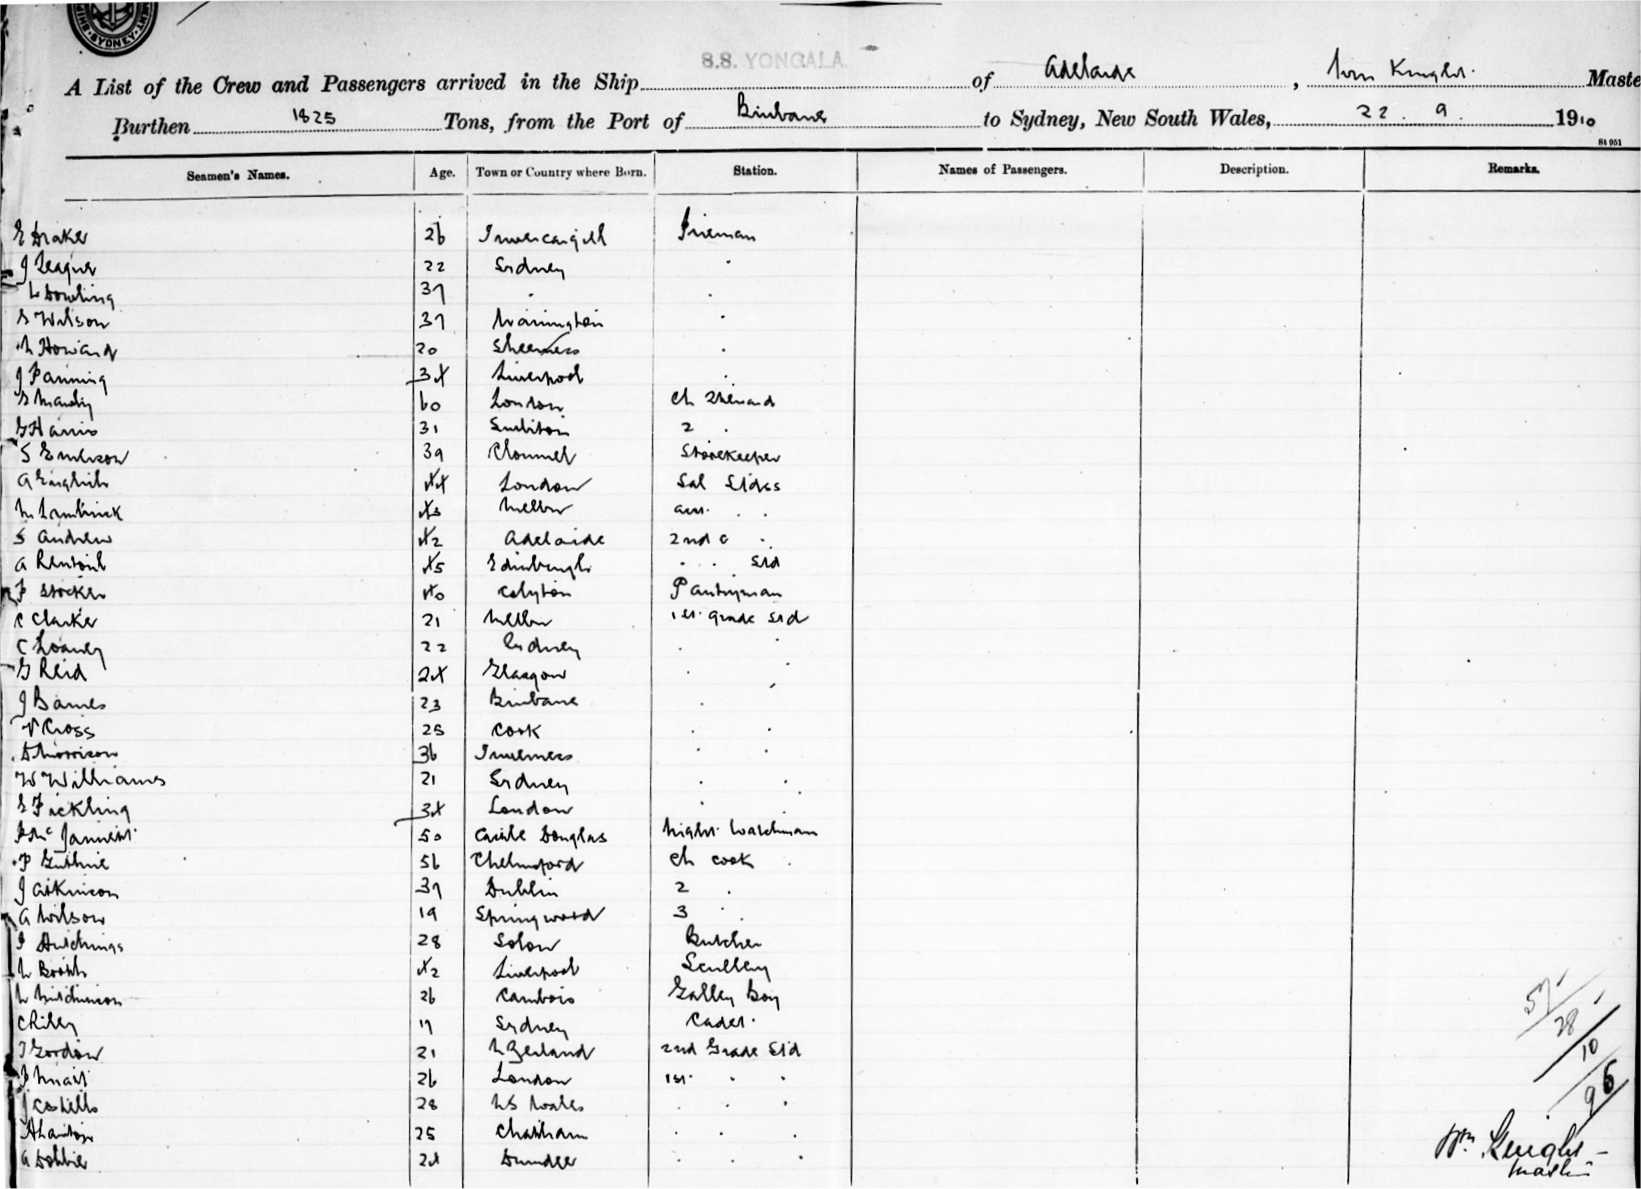 SYDNEY
S.S. YONGALA
A List of the Crew and Passengers arrived in the Ship of Adelaide, Wm Knight Maste
Burthen 1825 Tons, from the Port of Brisbane to Sydney, New South Wales, 22. 9. 1910
Seamen's Names. Age. Town or Country where Born. Station. Names of Passengers. Description. Remarks.
E Draker 26 Invercargill Fireman
J Teague 22 Sydney "
Dowling 37 " "
S Wilson 37 Warrington "
Howard 20 Sheerness "
J Fanning 34 Liverpool "
60 London Ch Steward
G Harris 31 Surbiton 2 "
S Emerson 39 Clonmel Storekeeper
A English 44 London Sal Stdss
Melbn
S Andrew 42 Adelaide 2nd C "
A 45 Edinburgh " " Std
F Stocker 40 Colyton Pantryman
C Clarke 21 Melbn 1st grade Std
C Looney 22 Sydney " "
G Reid 24 Glasgow " "
J Barnes 23 Brisbane " "
V Cross 25 Cook " "
D Morrison 36 Inverness " "
W Williams 21 Sydney " "
S Fickling 34 London " "
50 Castle Douglas Night Watchman
P Guthrie 56 Chelmsford Ch Cook
J Atkinson 37 Dublin 2 "
A Wilson 19 Springwood 3 "
Hutchings 28 Butcher
Booth 42 Liverpool Scullery
Hutchinson 26 Cambois Galley Boy
C Riley 17 Sydney Cadet
J Gordon 21 N Zealand 2nd Grade Std
26 London 1st " "
J Costello 28 N S Wales " " "
25 Chatham " " "
A Dobbie 24 Dundee " " "
57
28
10
95
Wm Knight
Master